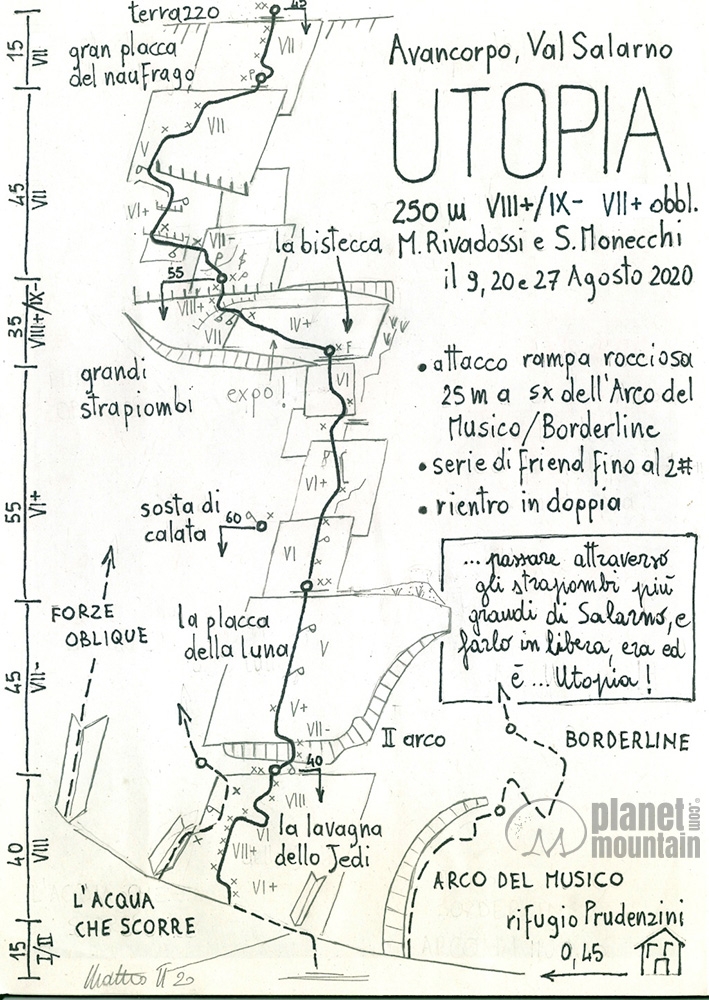 terrazzo
45
15
VII
gran placca
del naufrago
VII
P
Avancorpo, Val Salarno
UTOPIA
250 m VIII+/IX- VII+ obbl.
M. Rivadossi e S. Monecchi
il 9, 20 e 27 Agosto 2020
VII
V
VI+
VII-
45
VII
la bistecca
55
VIII+
VII
IV+
F
35
VIII+/IX-
grandi
strapiombi
expo!
VI
• attacco rampa rocciosa
25 m a sx dell'Arco del
Musico/Borderline
• serie di friend fino al 2#
• rientro in doppia
VI+
55
VI+
sosta di
calata
60
VI
... passare attraverso
gli strapiombi più
grandi di Salarno, e
farlo in libera, era ed
è ... Utopia!
FORZE
OBLIQUE
la placca
della luna
V
V+
VII-
45
VII-
II arco
BORDERLINE
40
VIII
VI
VII+
VI+
la lavagna
dello Jedi
40
VIII
planet
mountain
.com
ARCO DEL MUSICO
L'ACQUA
CHE SCORRE
rifugio Prudenzini
0,45
15
I/II